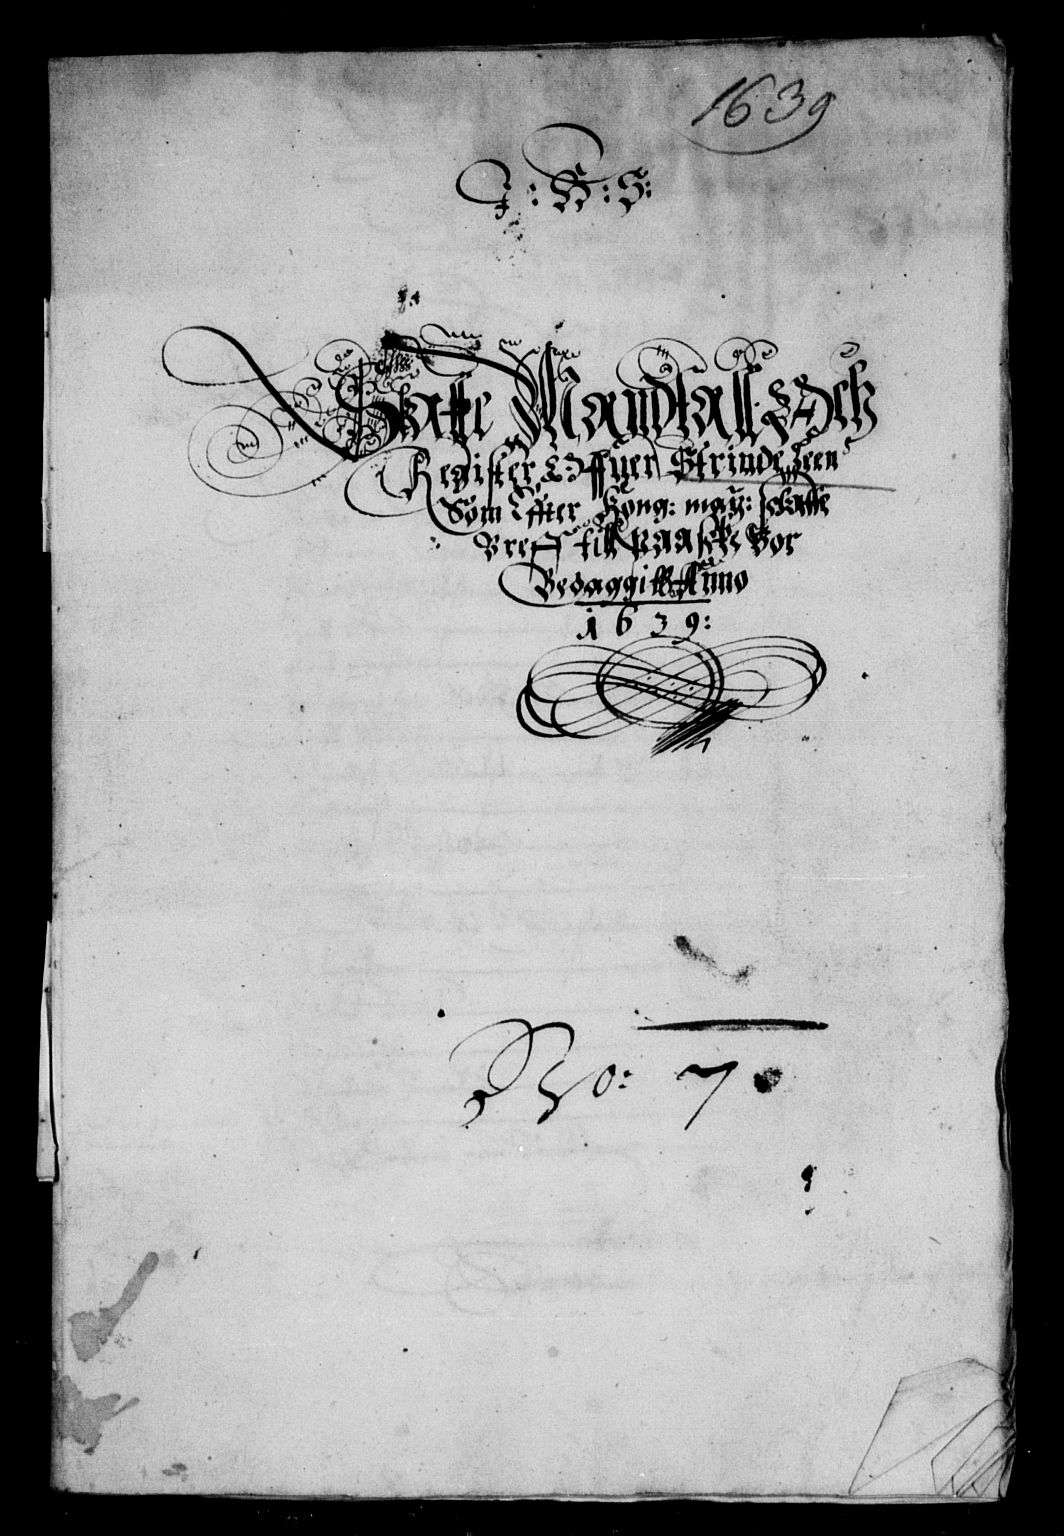 1639
J: B: S:
Skatte Mandtall Och
Register Offuer Strinde Leen
Som Effter Kong: may: schatte
Breff till paaschе Vor
Bedaggitt Anno
1639:
No: 7.